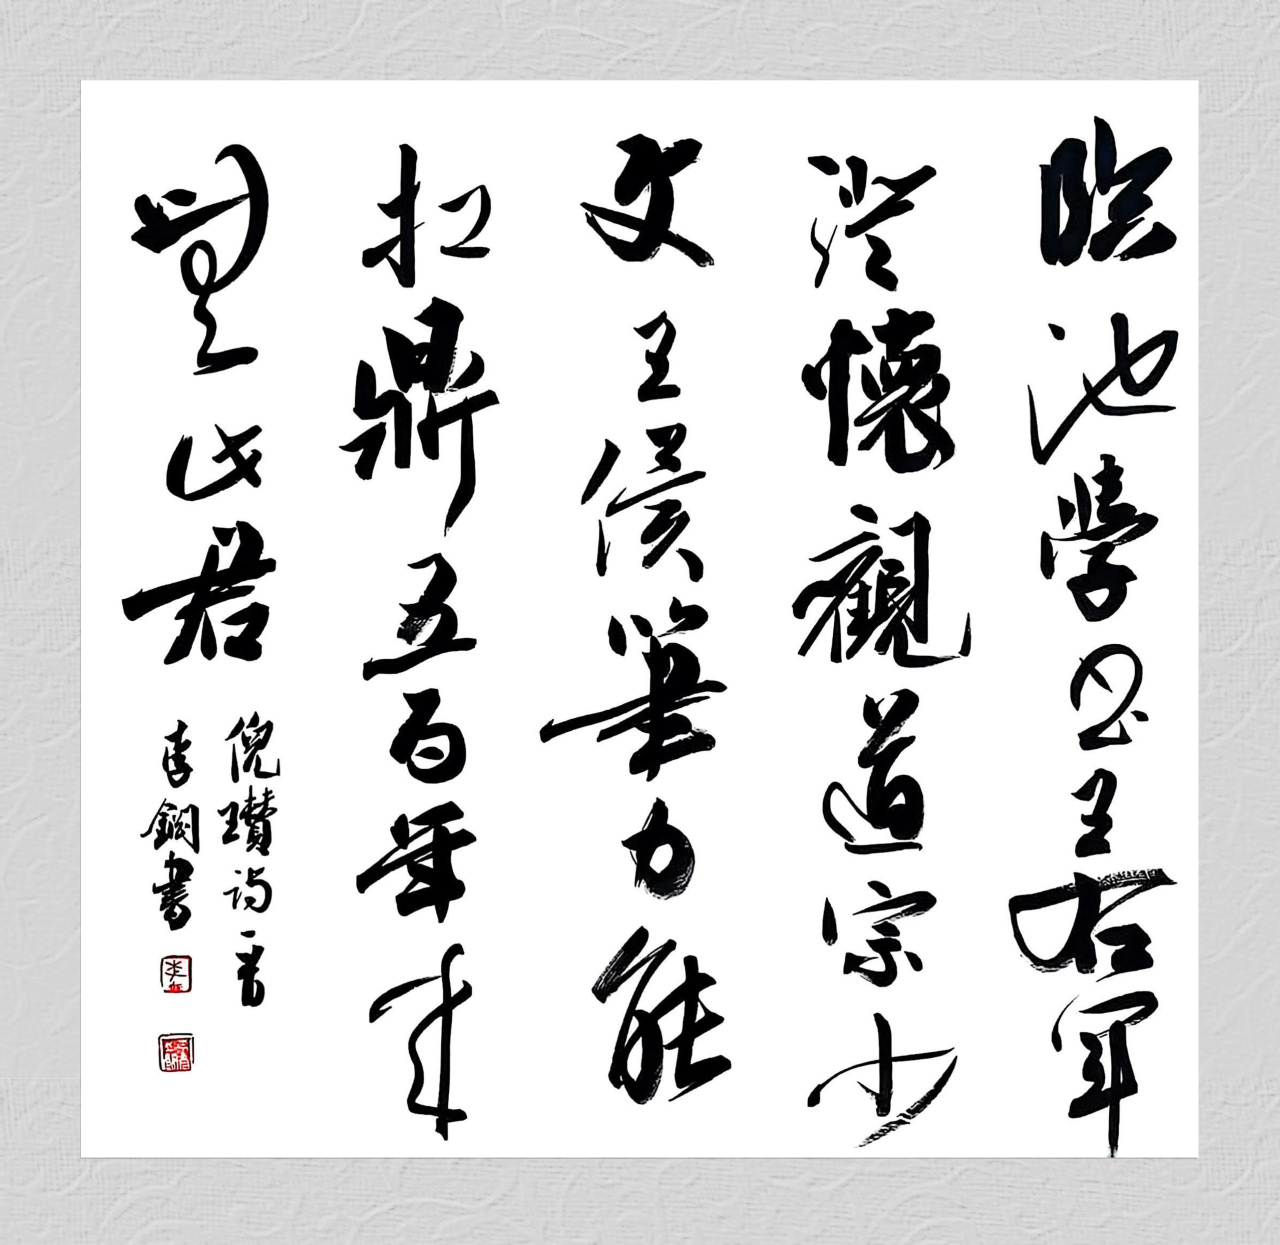 臨池學書王右軍
澄懷觀道宗少
文王侯筆力能
扛鼎五百年来
無此君
倪瓚詩一首
李鋼書